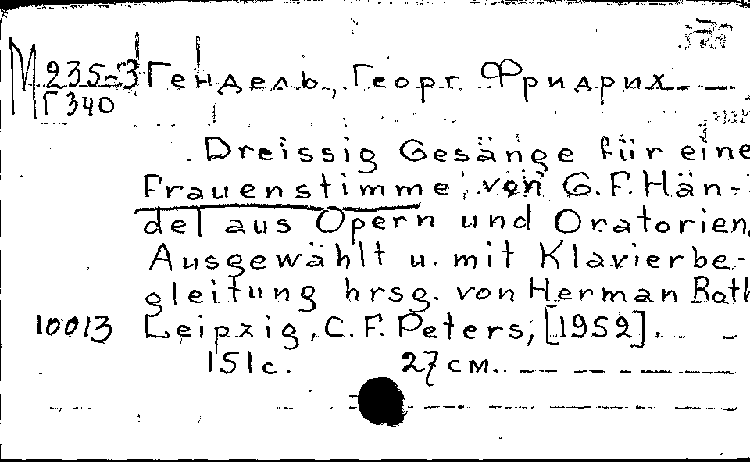 М 235-3 Гендель, Георг Фридрих
Г 340
Dreissig Gesänge für eine
Frauenstimme, von G.F. Hän-
del aus Opern und Oratorien,
Ausgewählt u. mit Klavierbe-
gleitung hrsg. von Herman Roth
10013 Leipzig, C.F. Peters, [1952].
151 с. 27 см.